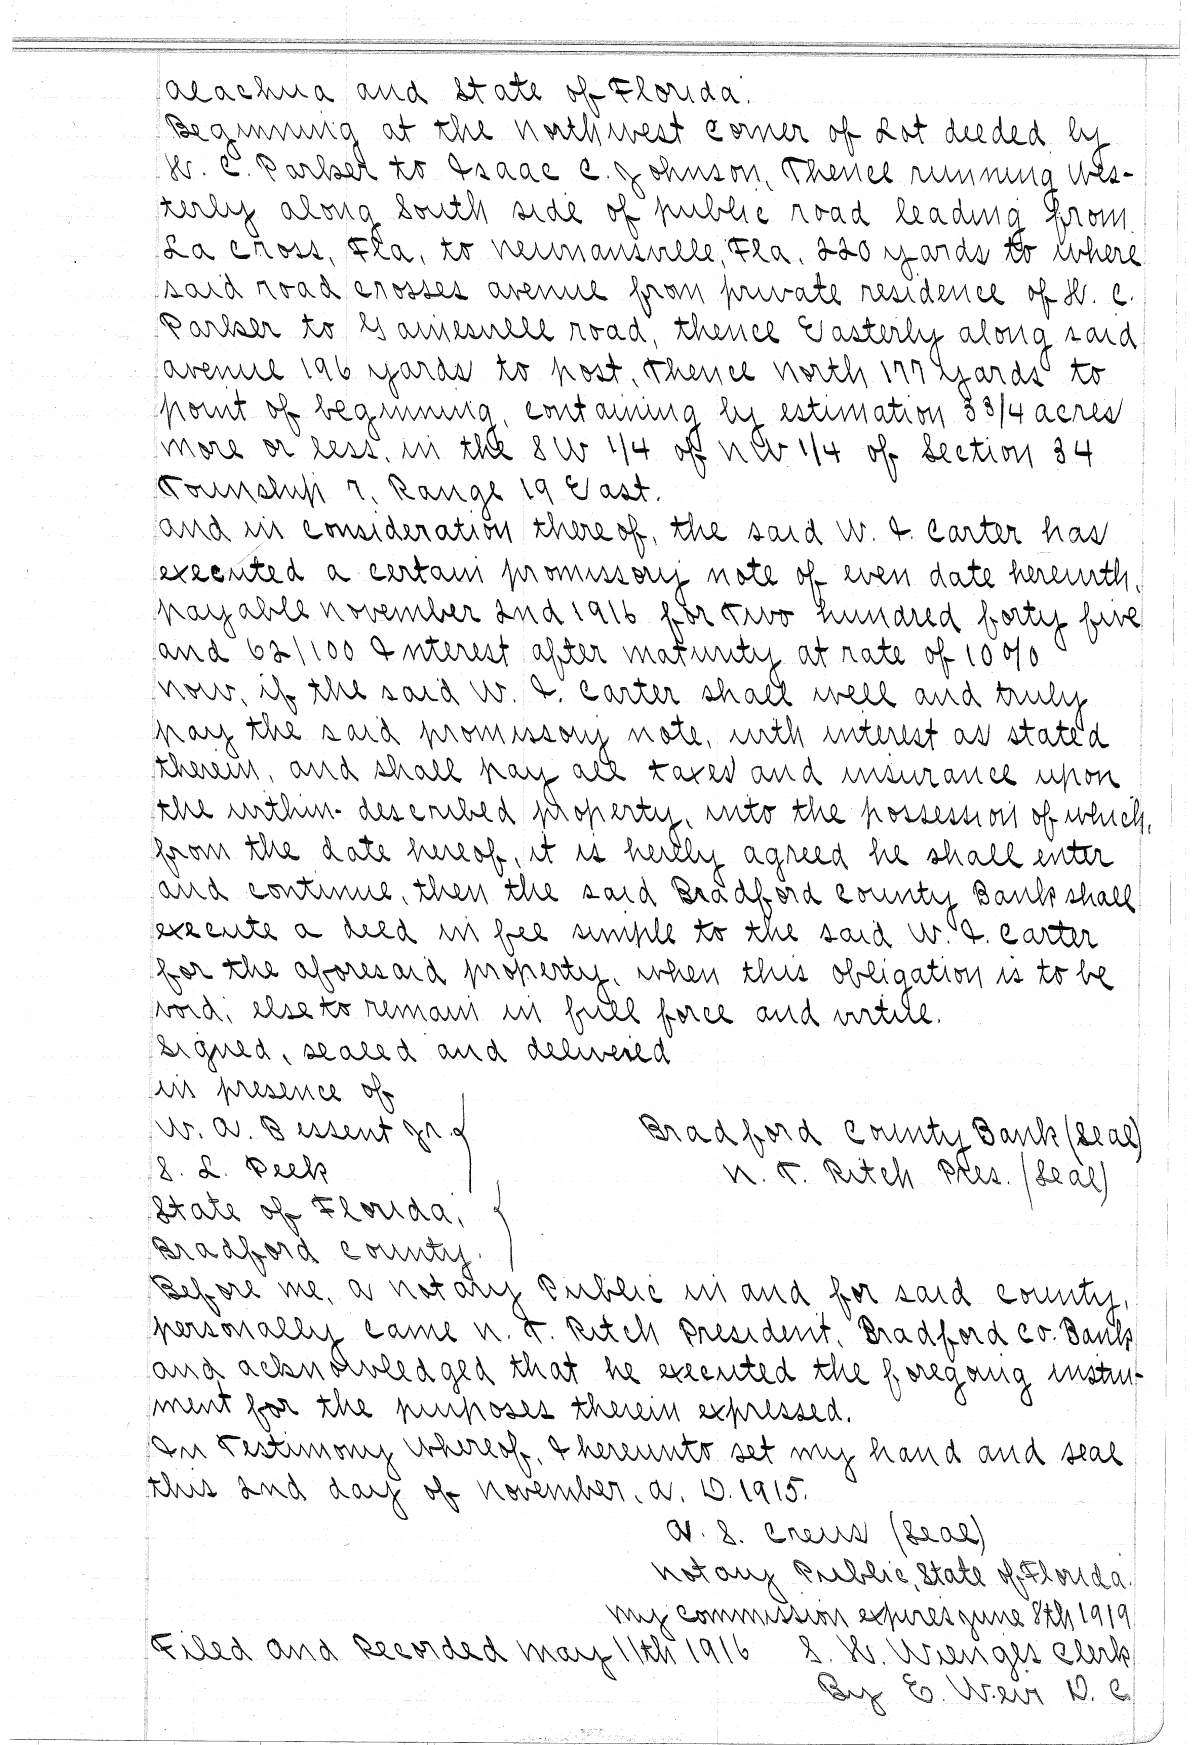 Alachua and State of Florida.
Beginning at the Northwest corner of Lot deeded by
H. C. Parker to Isaac C. Johnson, Thence running Wes-
terly along South side of public road leading from
La Cross, Fla, to Neumansville, Fla, 220 yards to where
said road crosses avenue from private residence of H. C.
Parker to Gainesville road, thence Easterly along said
avenue 196 yards to post, Thence North 177 yards to
point of beginning, containing by estimation 3 3/4 acres
more or less, in the SW 1/4 of NW 1/4 of Section 34
Township 7, Range 19 East.
And in consideration thereof, the said W. I. Carter has
executed a certain promissory note of even date herewith,
payable November 2nd 1916 for Two hundred forty five
and 62/100 Interest after maturity at rate of 10 0/0
Now, if the said W. I. Carter shall well and truly
pay the said promissory note, with interest as stated
therein, and shall pay all taxes and insurance upon
the within-described property, into the possession of which,
from the date hereof, it is hereby agreed he shall enter
and continue, then the said Bradford County Bank shall
execute a deed in fee simple to the said W. I. Carter
for the aforesaid property, when this obligation is to be
void; else to remain in full force and virtue.
Signed, sealed and delivered
in presence of
W. A. Bessent Jr. Bradford County Bank (Seal)
S. L. Peek N. T. Ritch Pres. (Seal)
State of Florida,
Bradford County.
Before me, a Notary Public in and for said county,
personally came N. T. Ritch President, Bradford Co. Bank
and acknowledged that he executed the foregoing instru-
ment for the purposes therein expressed.
In Testimony Whereof, I hereunto set my hand and seal
this 2nd day of November, A. D. 1915.
A. S. Crews (Seal)
Notary Public, State of Florida.
My commission expires June 8th 1919
Filed and Recorded May 11th 1916 S. H. Wienges Clerk
By E. Weir D. C.